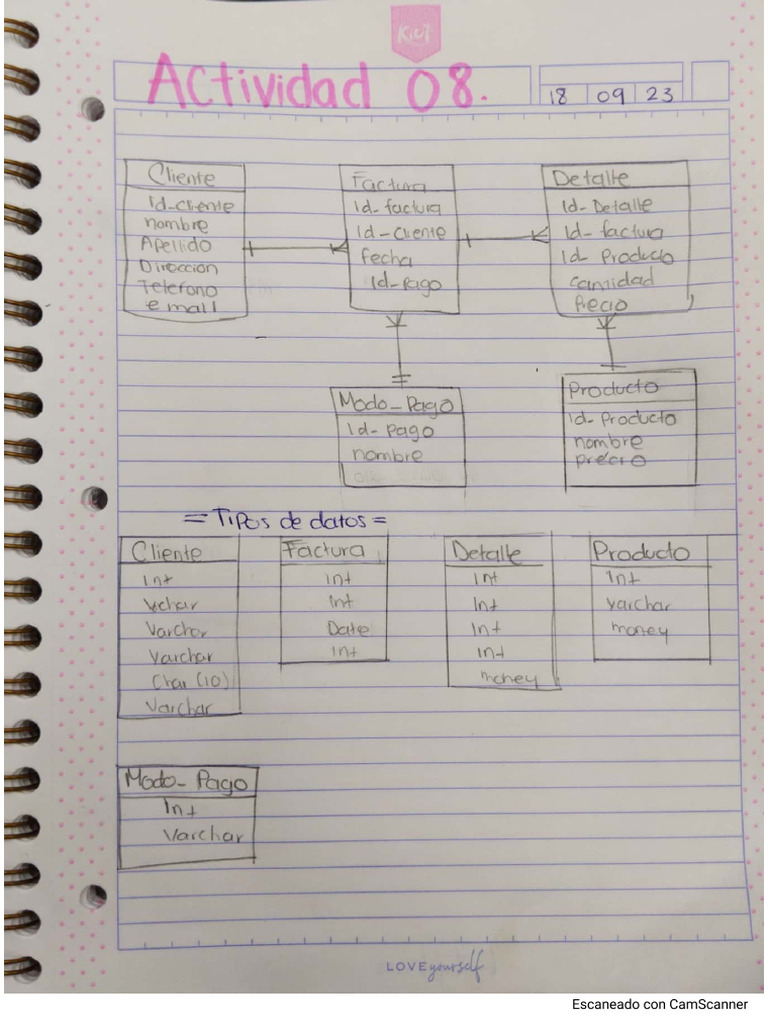 Kiut
Actividad 08.
18 09 23
Cliente
Id-cliente
nombre
Apellido
Dirección
Telefono
email
Factura
Id-factura
Id-cliente
fecha
Id-Pago
Detalle
Id-Detalle
Id-factura
Id-Producto
cantidad
Precio
Modo-Pago
Id-Pago
nombre
Producto
id-Producto
nombre
precio
= Tipos de datos =
Cliente
Int
Vchar
Varchar
Varchar
Char (10)
Varchar
Factura
int
Int
Date
int
Detalle
Int
Int
Int
Int
money
Producto
Int
varchar
money
Modo-Pago
Int
Varchar
LOVE yourself
Escaneado con CamScanner